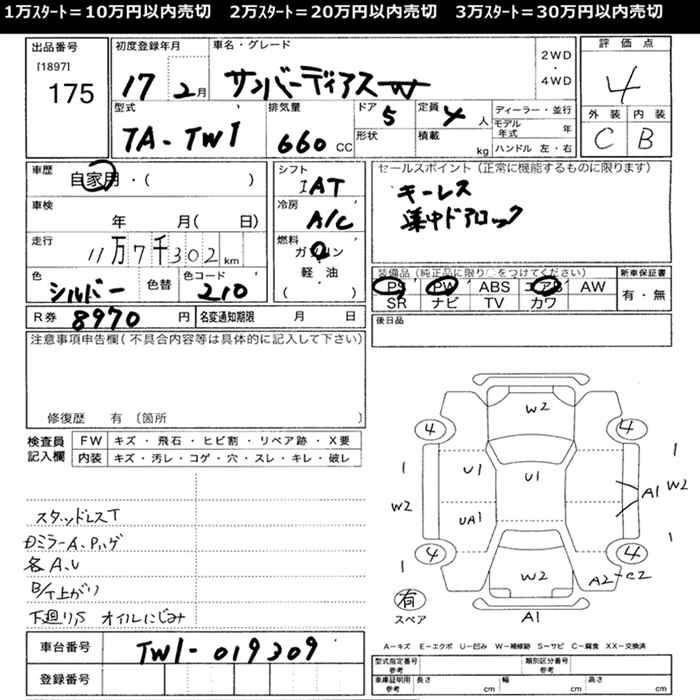 1万ｽﾀｰﾄ＝10万円以内売切　2万ｽﾀｰﾄ＝20万円以内売切　3万ｽﾀｰﾄ＝30万円以内売切
出品番号
[1897]
175
初度登録年月
17 2月
車名・グレード
サンバーディアス
2WD
・
4WD
評価点
4
外装 内装
C B
型式
TA-TW1
排気量
660 CC
ドア 5
形状
定員 4 人
積載 kg
ディーラー・並行
モデル年式 年
ハンドル 左・右
車歴
自家用・( )
車検
年 月( 日)
走行
11万7千302 km
色
シルバー
色替
色コード
210
シフト
IAT
冷房
A/C
燃料
ガソリン
軽油
( )
セールスポイント (正常に機能するものに限ります)
キーレス
集中ドアロック
装備品 (純正品に限り○をつけてください)
PS PW ABS エアB AW
SR ナビ TV カワ
新車保証書
有・無
R券 8970 円
名変通知期限 月 日
後日品
注意事項申告欄(不具合内容等は具体的に記入して下さい)
修復歴 有 〔箇所
検査員
記入欄
FW キズ・飛石・ヒビ割・リペア跡・X要
内装 キズ・汚レ・コゲ・穴・スレ・キレ・破レ
スタッドレスT
Dミラー A、Pハゲ
各A、U
下廻りS オイルにじみ
W2
4 4
1 U1 U1 1
W2 A1 W2
UA1
1 1
4 4
W2 A2 C2
有
スペア
A1
車台番号 TW1-019309
登録番号
A−キズ E−エクボ U−凹み W−補修跡 S−サビ C−腐食 XX−交換済
型式指定番号
参考
類別区分番号
参考
車庫証明用
参考
長さ cm 幅 cm 高さ cm